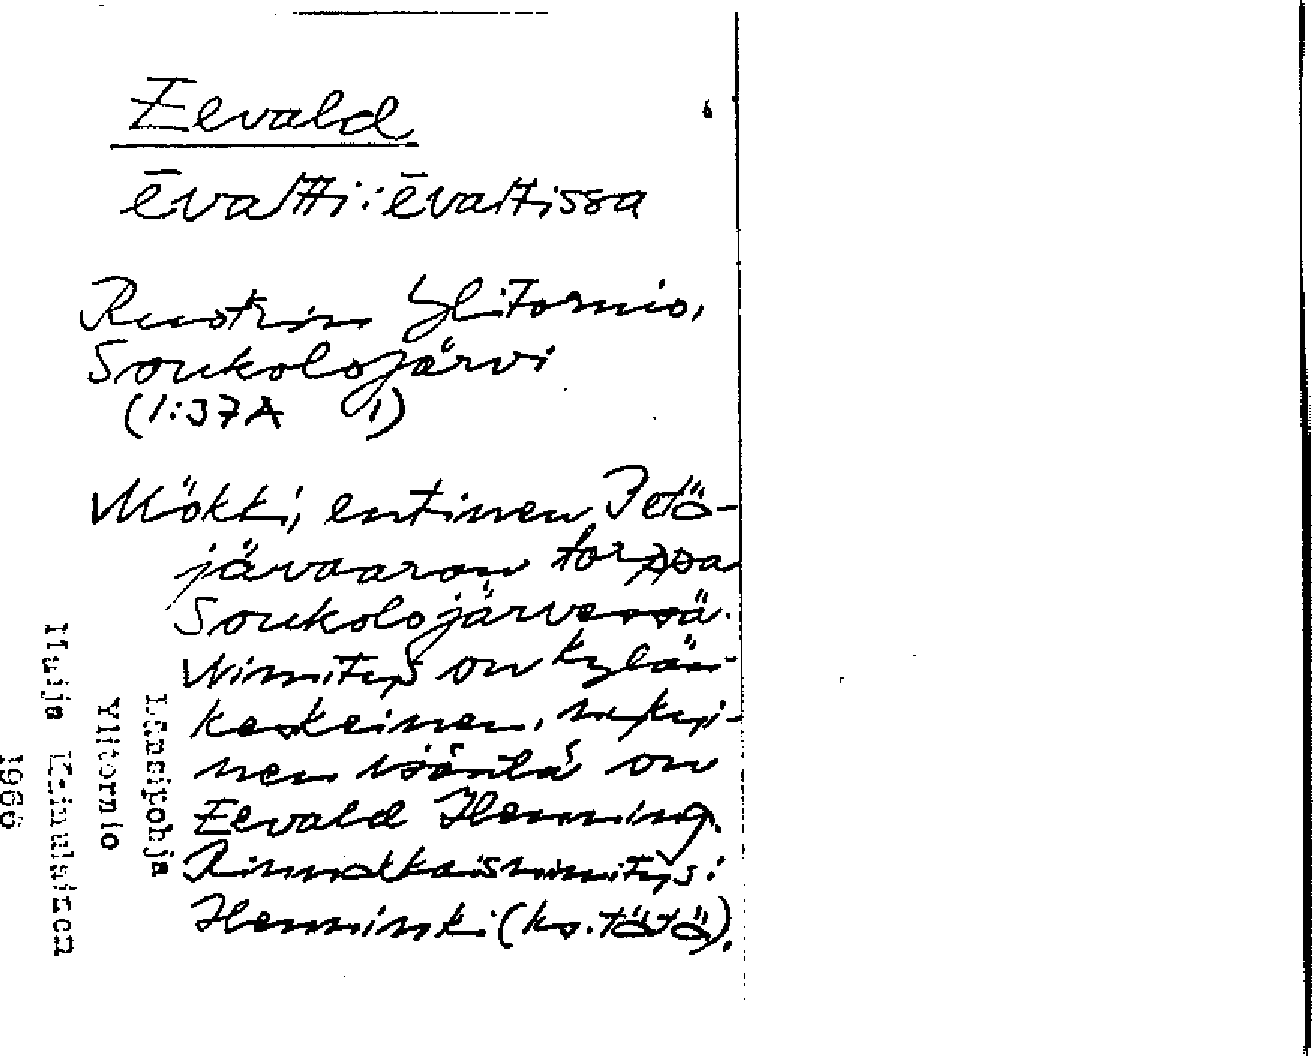 Eevald
ēvaltti: ēvaltissa
Ruotsin Ylitornio,
Soukolojärvi
(1:37A 1)
Mökki, entinen Petä-
jävaaran torppa
Soukolojärvessä.
Nimitys on kylän-
keskeinen, nykyi-
nen isäntä on
Eevald Henning.
Rinnakkaisnimitys:
Henninki (ks. tätä).
Länsipohja
Ylitornio
Maija Keinulainen
1966